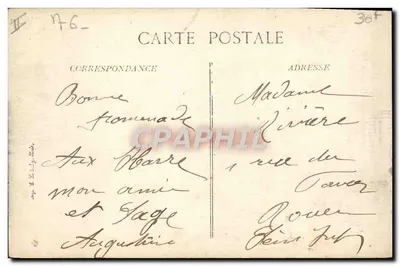 II 76- 30F
CARTE POSTALE
CORRESPONDANCE
ADRESSE
Bonne
promenade
Aux Havre
mon amie
et Sage
Augustine
Madame
Rivière
1 rue du
Rouen
CPARAPHIL